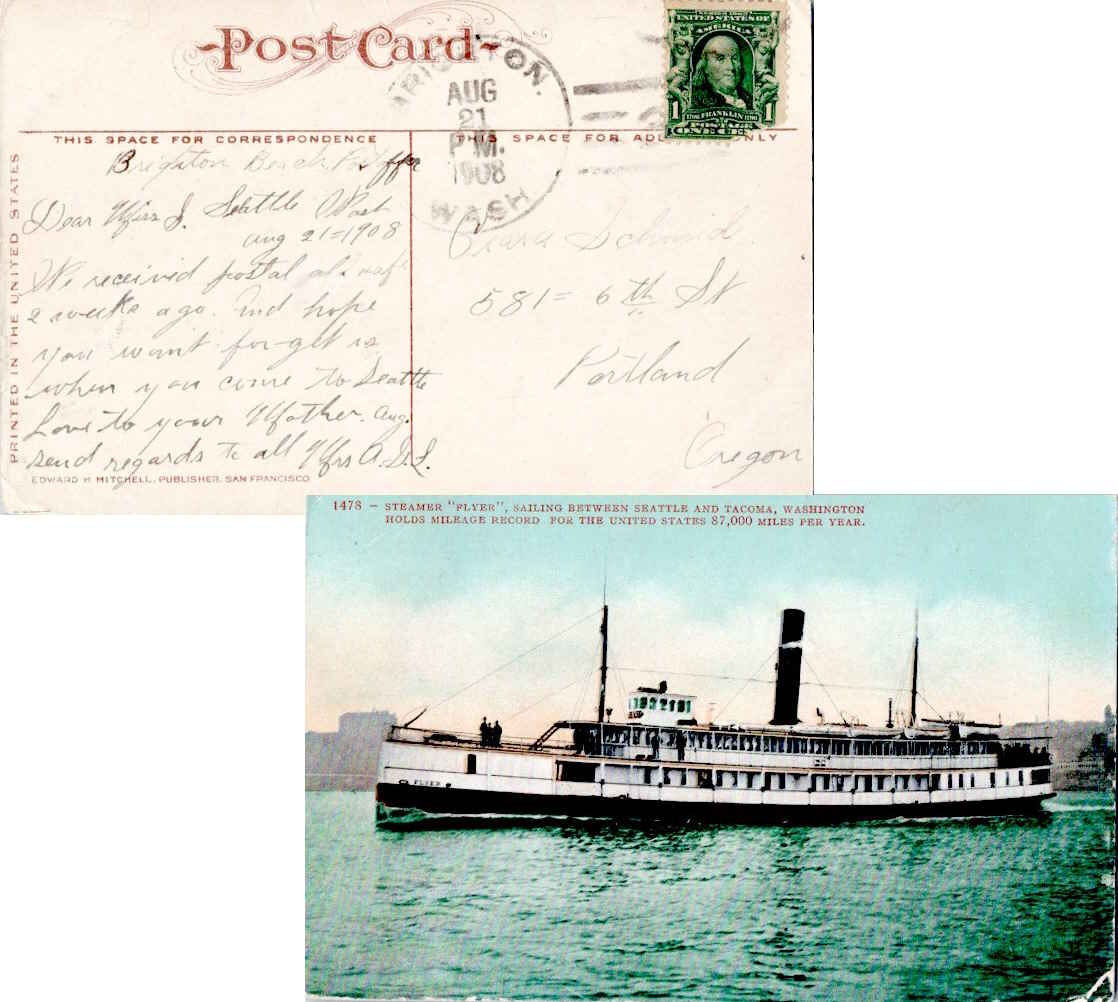 Post Card
BRIGHTON.
AUG
21
P.M.
1908
WASH
SERIES 1902
UNITED STATES OF
AMERICA
1 1706 FRANKLIN 1790 1
POSTAGE
ONE CE
THIS SPACE FOR CORRESPONDENCE
THIS SPACE FOR ADD ONLY
PRINTED IN THE UNITED STATES
Brighton Beach
Dear Miss S. Seattle Wash
Aug 21=1908
We received postal
2 weeks ago. And hope
you wont for-get us
when you come to Seattle
Love to your Mother. Aug.
send regards to all Mrs A.S.S.
EDWARD H MITCHELL, PUBLISHER, SAN FRANCISCO
Clara Schmidt
581= 6th St
Portland
Oregon
1478 – STEAMER "FLYER", SAILING BETWEEN SEATTLE AND TACOMA, WASHINGTON
HOLDS MILEAGE RECORD FOR THE UNITED STATES 87,000 MILES PER YEAR.
FLYER